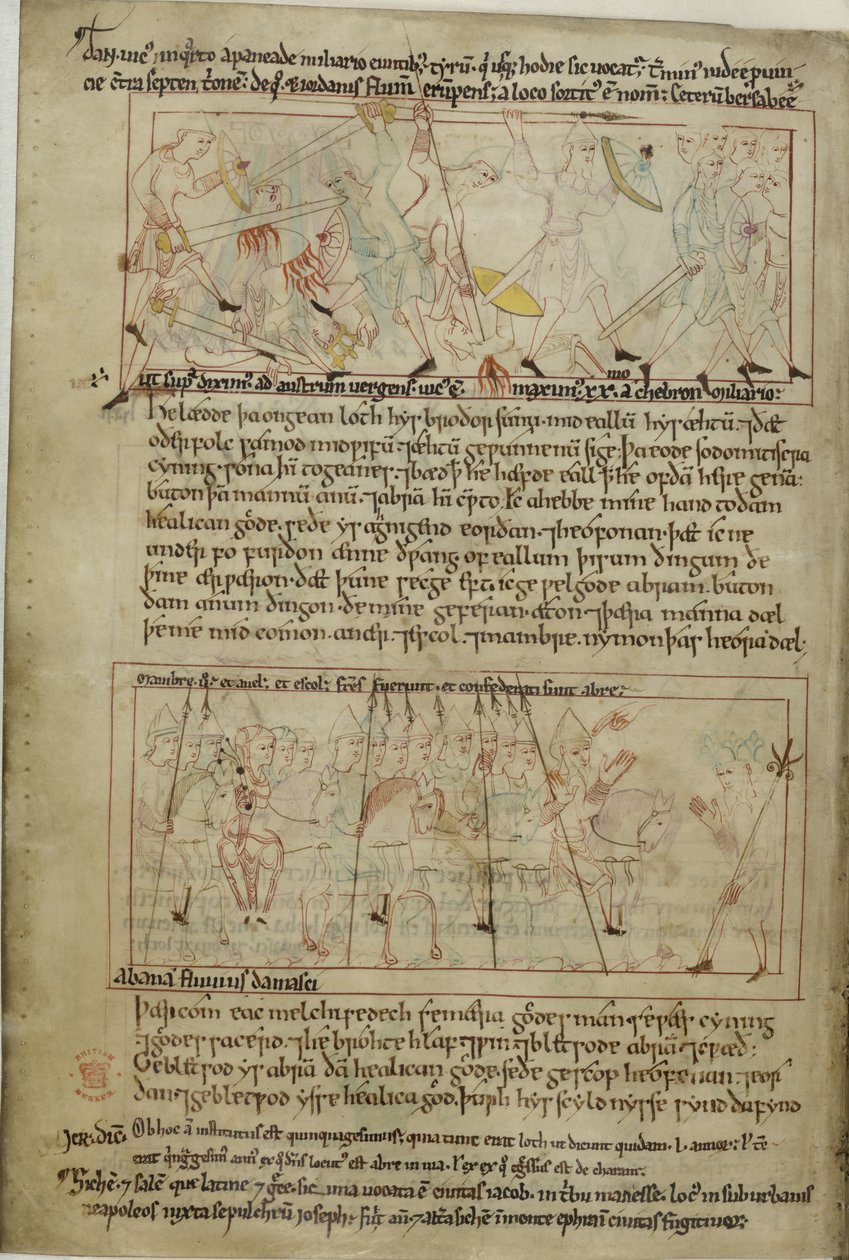 Dan. uic᷒ in q̄rto a paneade miliario euntib᷒ tyrū. q̄ usq; hodie sic uocat᷑. t̄min᷒ iudee puin
cie c̄tra septentͥonē: de q̊. ⁊ iordanis flum̄ erūpens; a loco sortit᷒ ē nom̄: Ceterū bersabee
ut sup᷑ diximˀ. ad austrum uergens. uic᷒ ē maximˀ. xx.mo a chebron miliario:
He lædde þa ongean loth hys broðor sunu. mid eallū hys æhtū. ⁊ ðæt
oðer folc samod mid wifū. ⁊ æhtū gewunnenū sige; þa eode sodomitiscra
cyning. sona hī togeanes. ⁊ bæd ꝥ he hæfde eall ꝥ he of ðā here genā:
buton þā mannū anū. ⁊ abrā hī cw̄ to. Ic ahebbe mine hand to ðam
healican gōde. seðe ys agnigend eorðan. ⁊ heofonan. þæt ic ne
underfo furðon ænne ðwang. of eallum þisum ðingum ðe
þine ær wæron. ðæt þu ne secge eft. ic gewelgode abram. buton
ðam anum ðingon. ðe mine geferan æton. ⁊ þæra manna dæl
þe me mid comon. aner. ⁊ escol. ⁊ mambre. nymon þas heora dæl.
Mambre. q̊. et anel; et escol; frēs fuerunt. et confederati sunt abre;
abana fluuius damasci
Þær com eac melchisedech se mæra gōdes man. se wæs cyning
⁊ gōdes sacerd. ⁊ he brohte hlaf. ⁊ win. ⁊ bletsode abrā ⁊ cwæð:
Gebletsod ys abrā ðā healican gōde. seðe gesceop heofonan. ⁊ eor
ðan. ⁊ gebletsod ys se healica gōd. þurh hys scyld nysse synd ða fynd
Ier. dic̄. Ob hoc ā institutus est quinquagesimus; quia tunc erat loth ut dicunt quidam. L. annor᷑:
erat ann᷒ ex q̊ d̄ns locut᷒ est abre in uia. ł ex ex q̊ egressus est de charan:
Sichē. ⁊ salē que latine ⁊ grece. sic una uocata ē ciuitas iacob. in tͥbu manesse. loc᷒ in suburbanis
neapoleos iuxta sepulchrū ioseph; Fuit aū. ⁊ alťa sichē ī monte ephraī ciuitas fugitiuor᷑:
BRITISH
MUSEUM